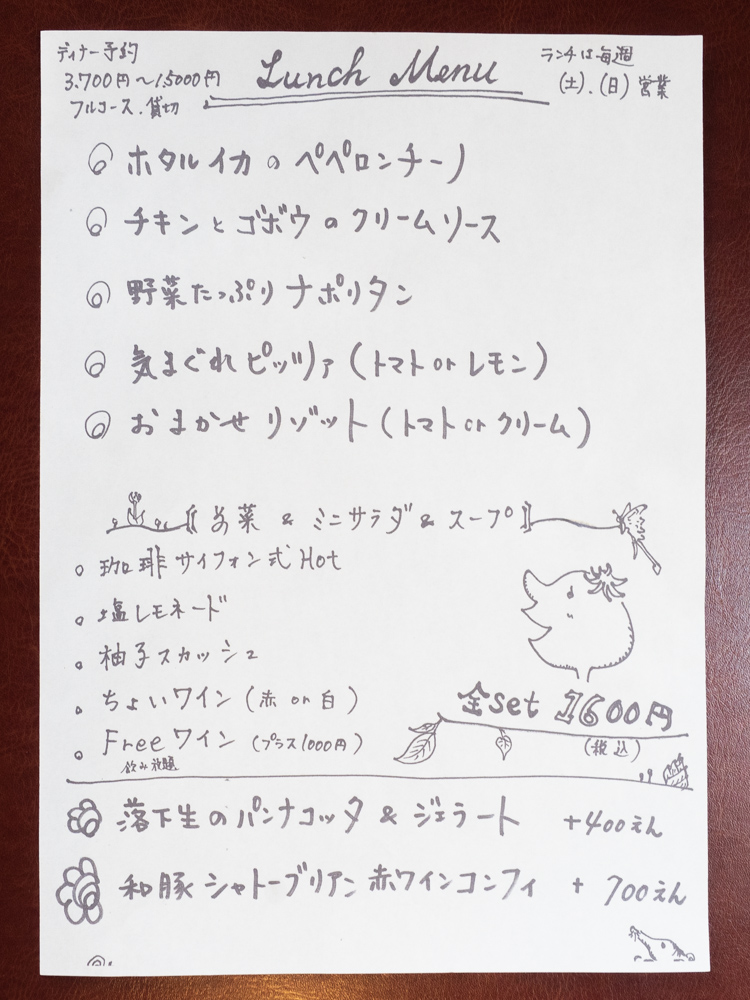 ディナー予約
3.700円〜15000円
フルコース.貸切
Lunch Menu
ランチは毎週
(土).(日)営業
ホタルイカのペペロンチーノ
チキンとゴボウのクリームソース
野菜たっぷりナポリタン
気まぐれピッツァ(トマト or レモン)
おまかせリゾット(トマト or クリーム)
【前菜 & ミニサラダ & スープ】
珈琲サイフォン式 Hot
塩レモネード
柚子スカッシュ
ちょいワイン(赤 or 白)
Freeワイン(プラス1000円)
飲み放題
全set 1600円
(税込)
落下生のパンナコッタ & ジェラート +400えん
和豚シャトーブリアン赤ワインコンフィ + 700えん